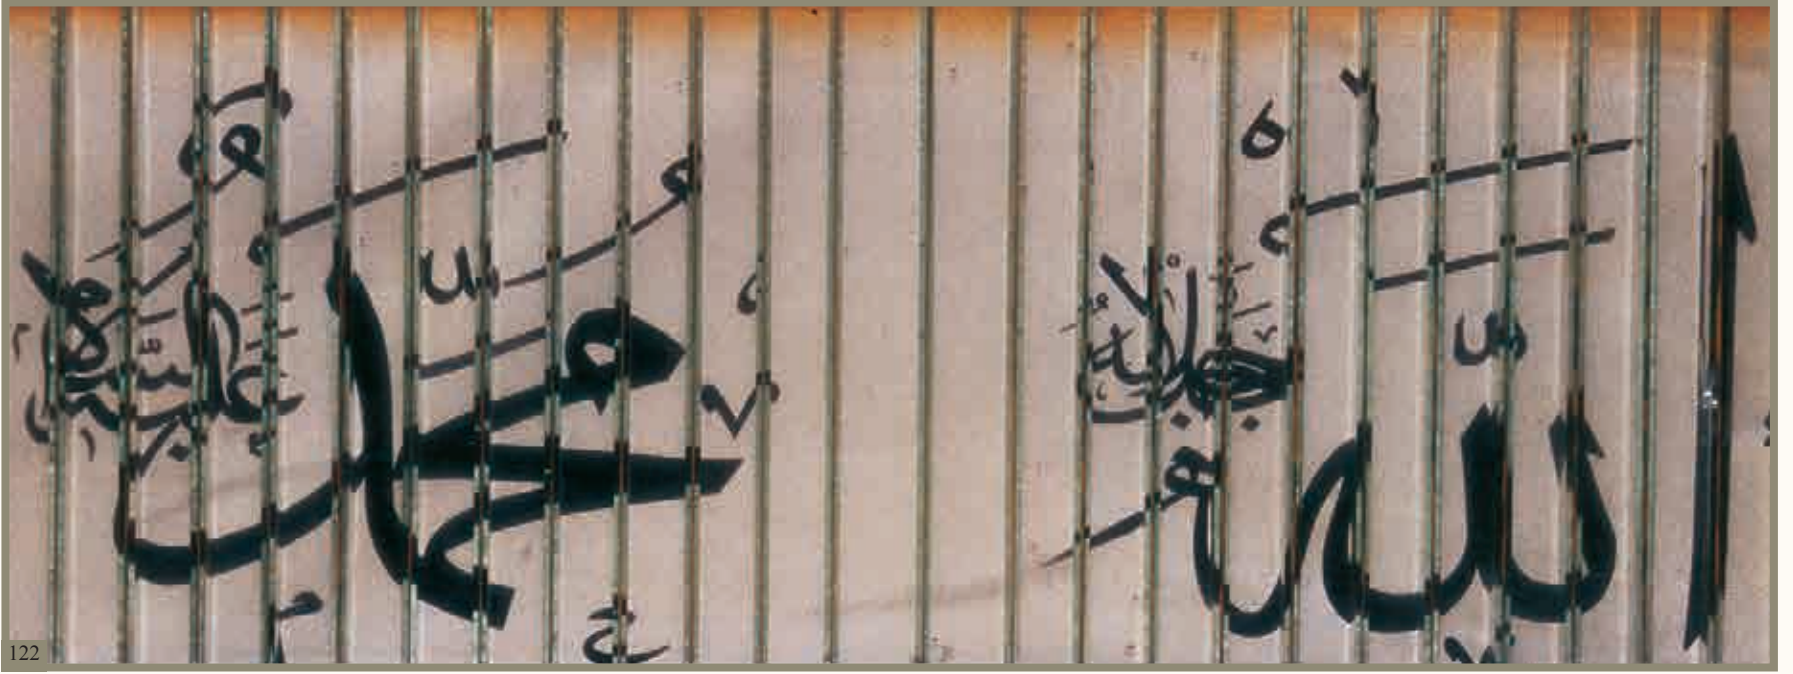 الله جل جلاله
محمد عليه السلام
122